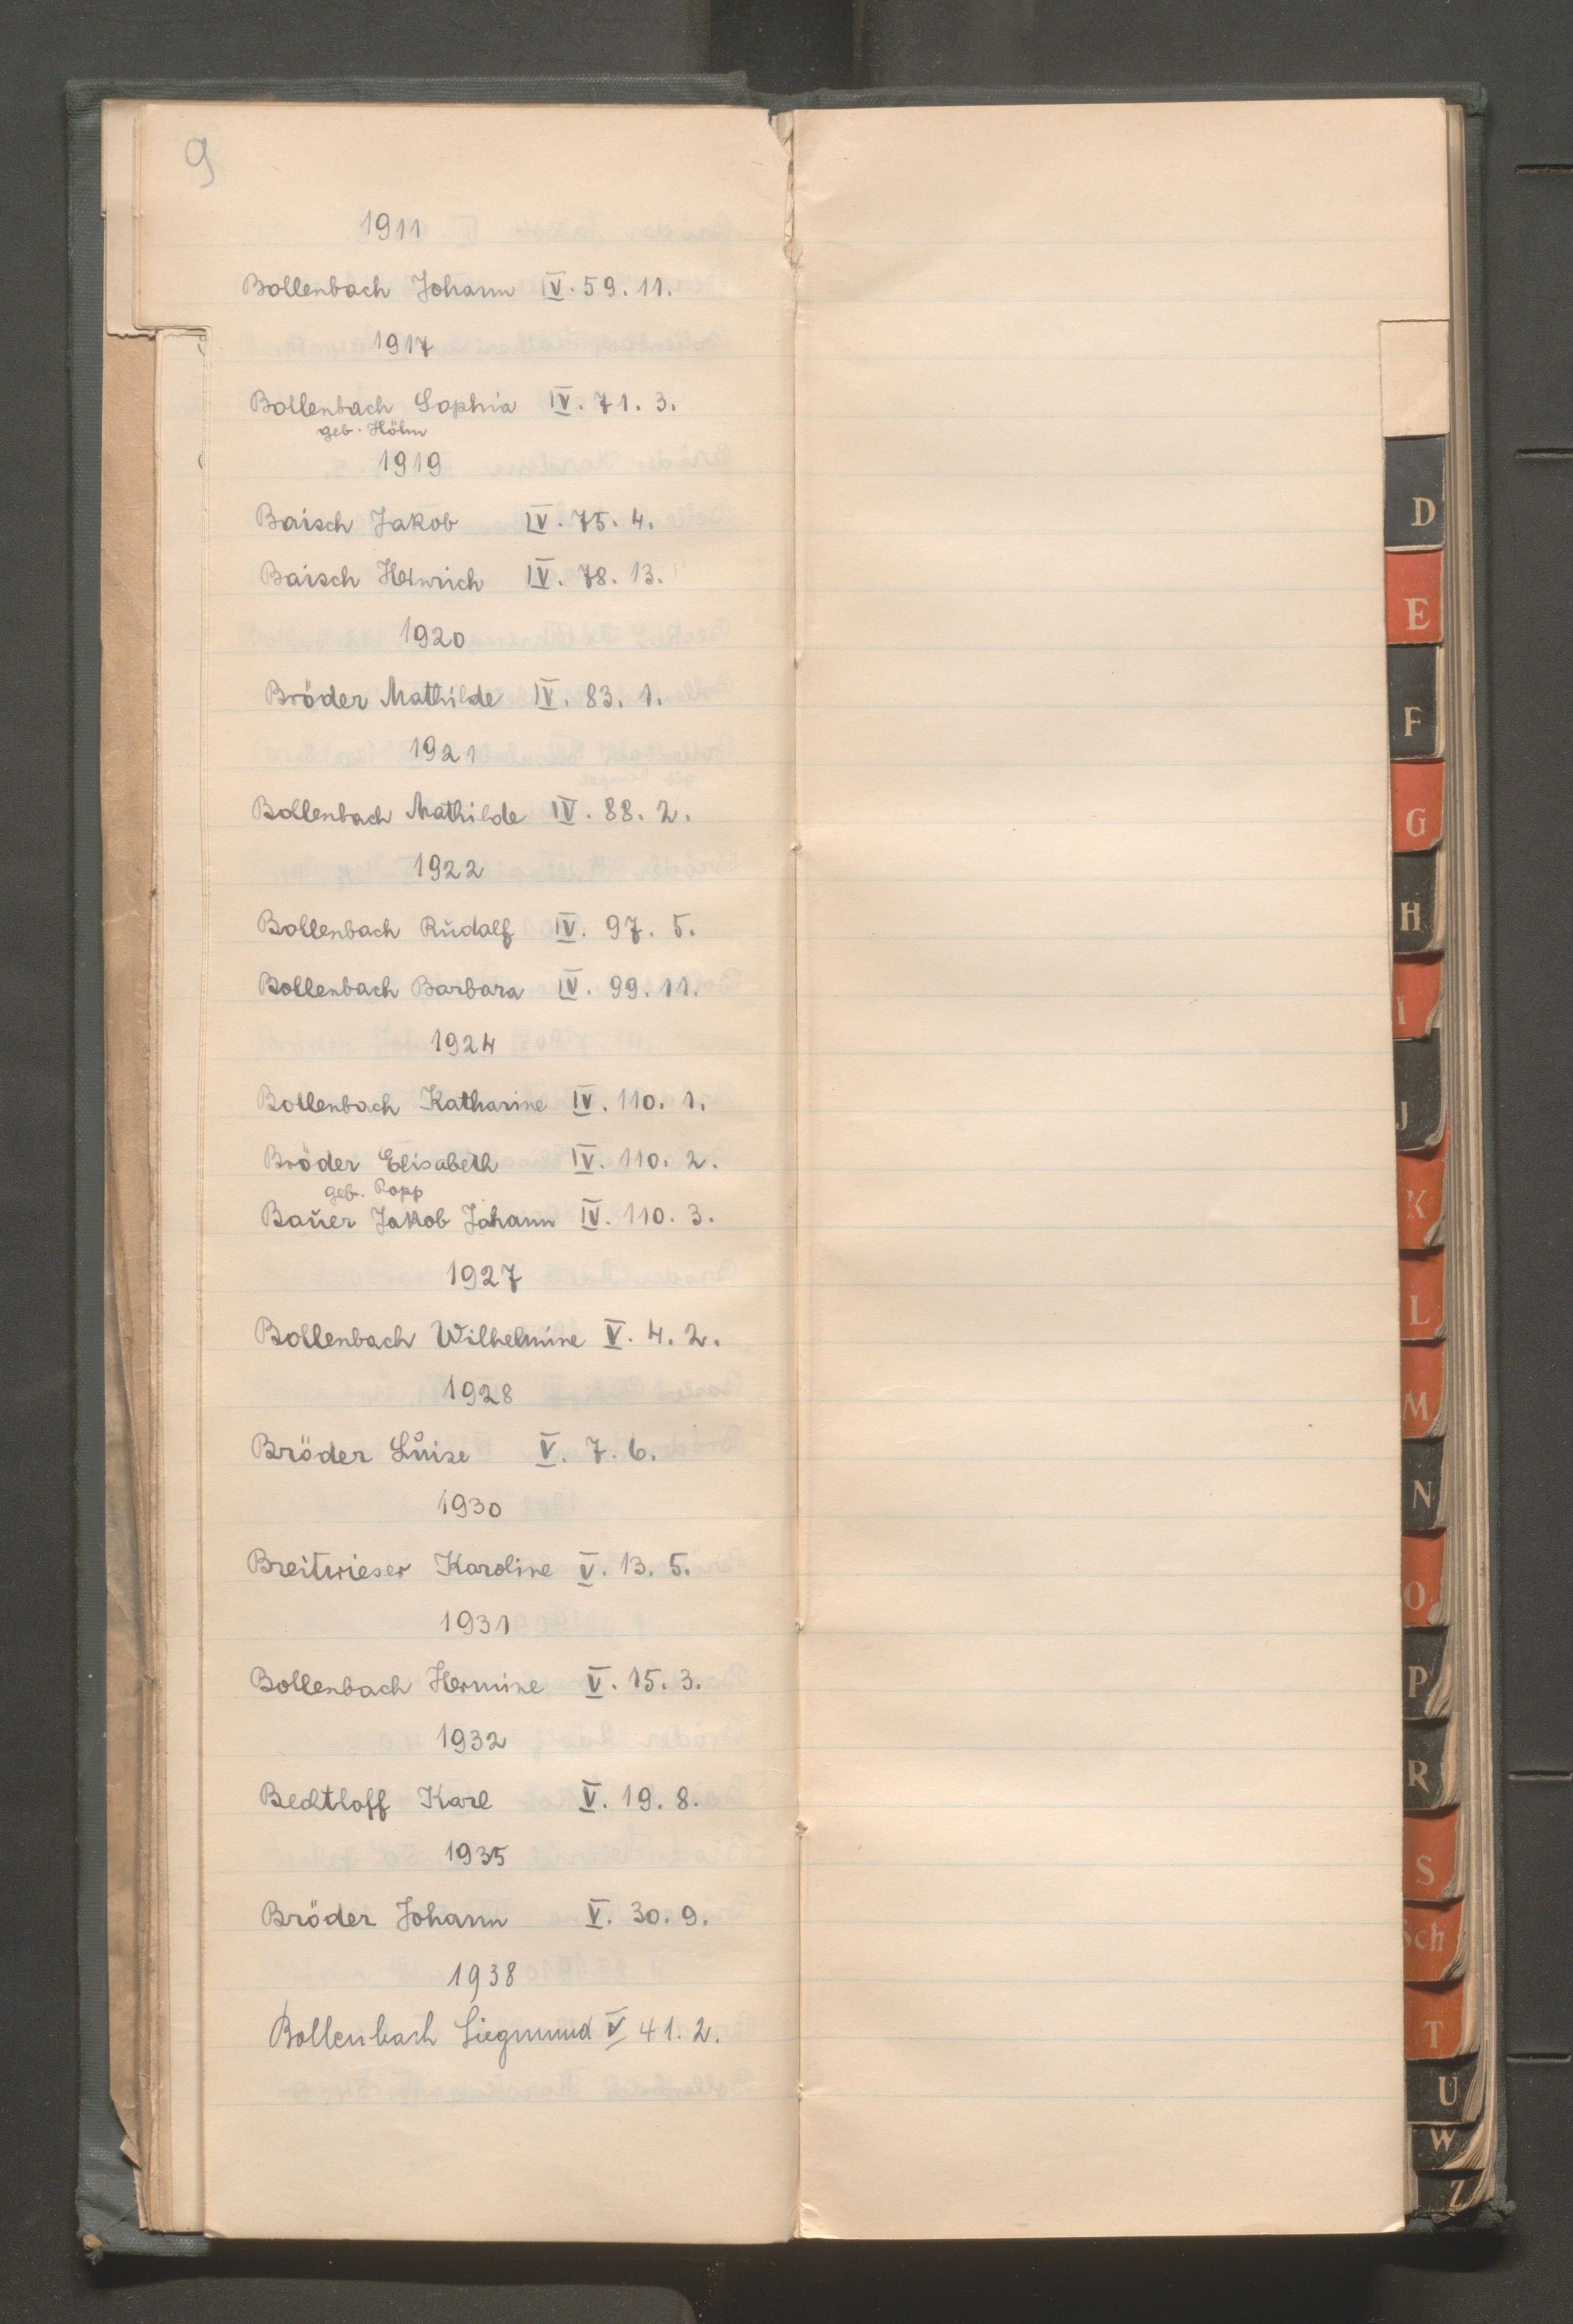 9
1911
Bollenbach Johann IV. 59. 11.
1917
Bollenbach Sophia IV. 71. 3.
geb. Höhn
1919
Baisch Jakob IV. 75. 4.
Baisch Heinrich IV. 78. 13.
1920
Bröder Mathilde IV. 83. 1.
1921
Bollenbach Mathilde IV. 88. 2.
1922
Bollenbach Rudolf IV. 97. 5.
Bollenbach Barbara IV. 99. 11.
1924
Bollenbach Katharine IV. 110. 1.
Bröder Elisabeth IV. 110. 2.
geb. Popp
Bauer Jakob Johann IV. 110. 3.
1927
Bollenbach Wilhelmine V. 4. 2.
1928
Bröder Luise V. 7. 6.
1930
Breitwieser Karoline V. 13. 5.
1931
Bollenbach Hermine V. 15. 3.
1932
Bedtloff Karl V. 19. 8.
1935
Bröder Johann V. 30. 9.
1938
Bollenbach Siegmund V 41. 2.
D
E
F
G
H
I
J
K
L
M
N
O
P
R
S
Sch
T
U
W
Z